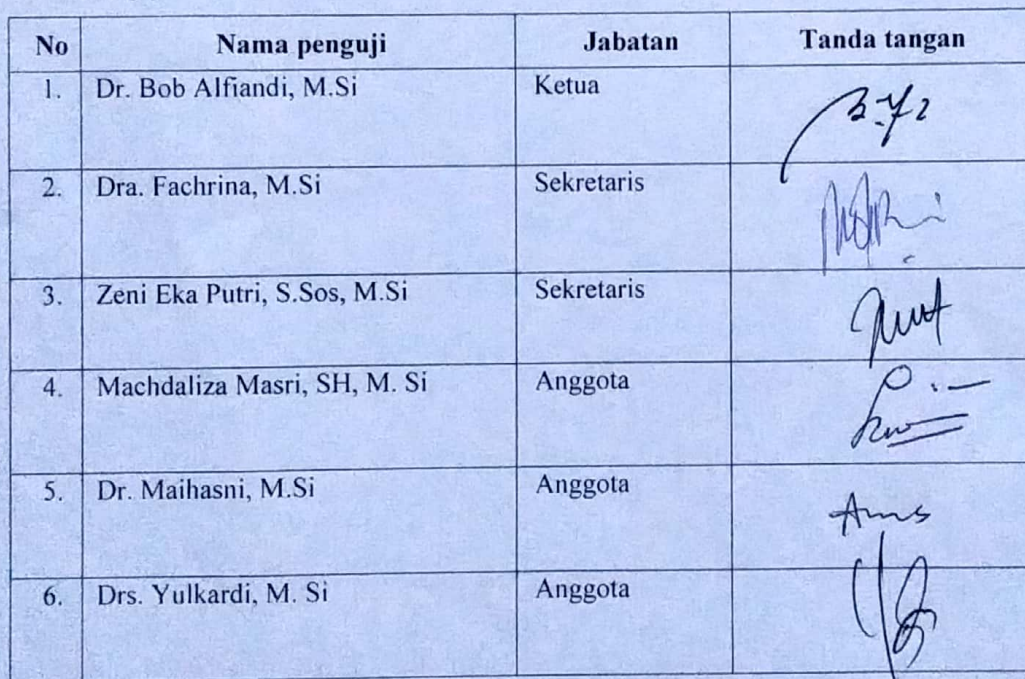 No Nama penguji Jabatan Tanda tangan
1. Dr. Bob Alfiandi, M.Si Ketua
2. Dra. Fachrina, M.Si Sekretaris
3. Zeni Eka Putri, S.Sos, M.Si Sekretaris
4. Machdaliza Masri, SH, M. Si Anggota
5. Dr. Maihasni, M.Si Anggota
6. Drs. Yulkardi, M. Si Anggota